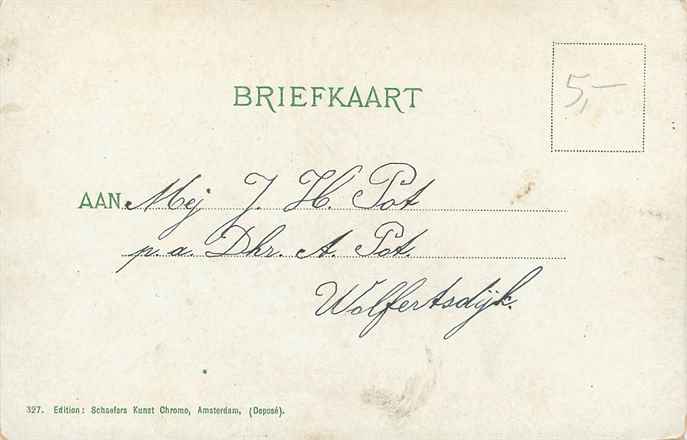 BRIEFKAART
5,-
AAN Mej J. H. Pot
p.a. Dhr. A. Pot.
Wolfertsdijk.
327. Edition: Schaefers Kunst Chromo, Amsterdam, (Deposé).